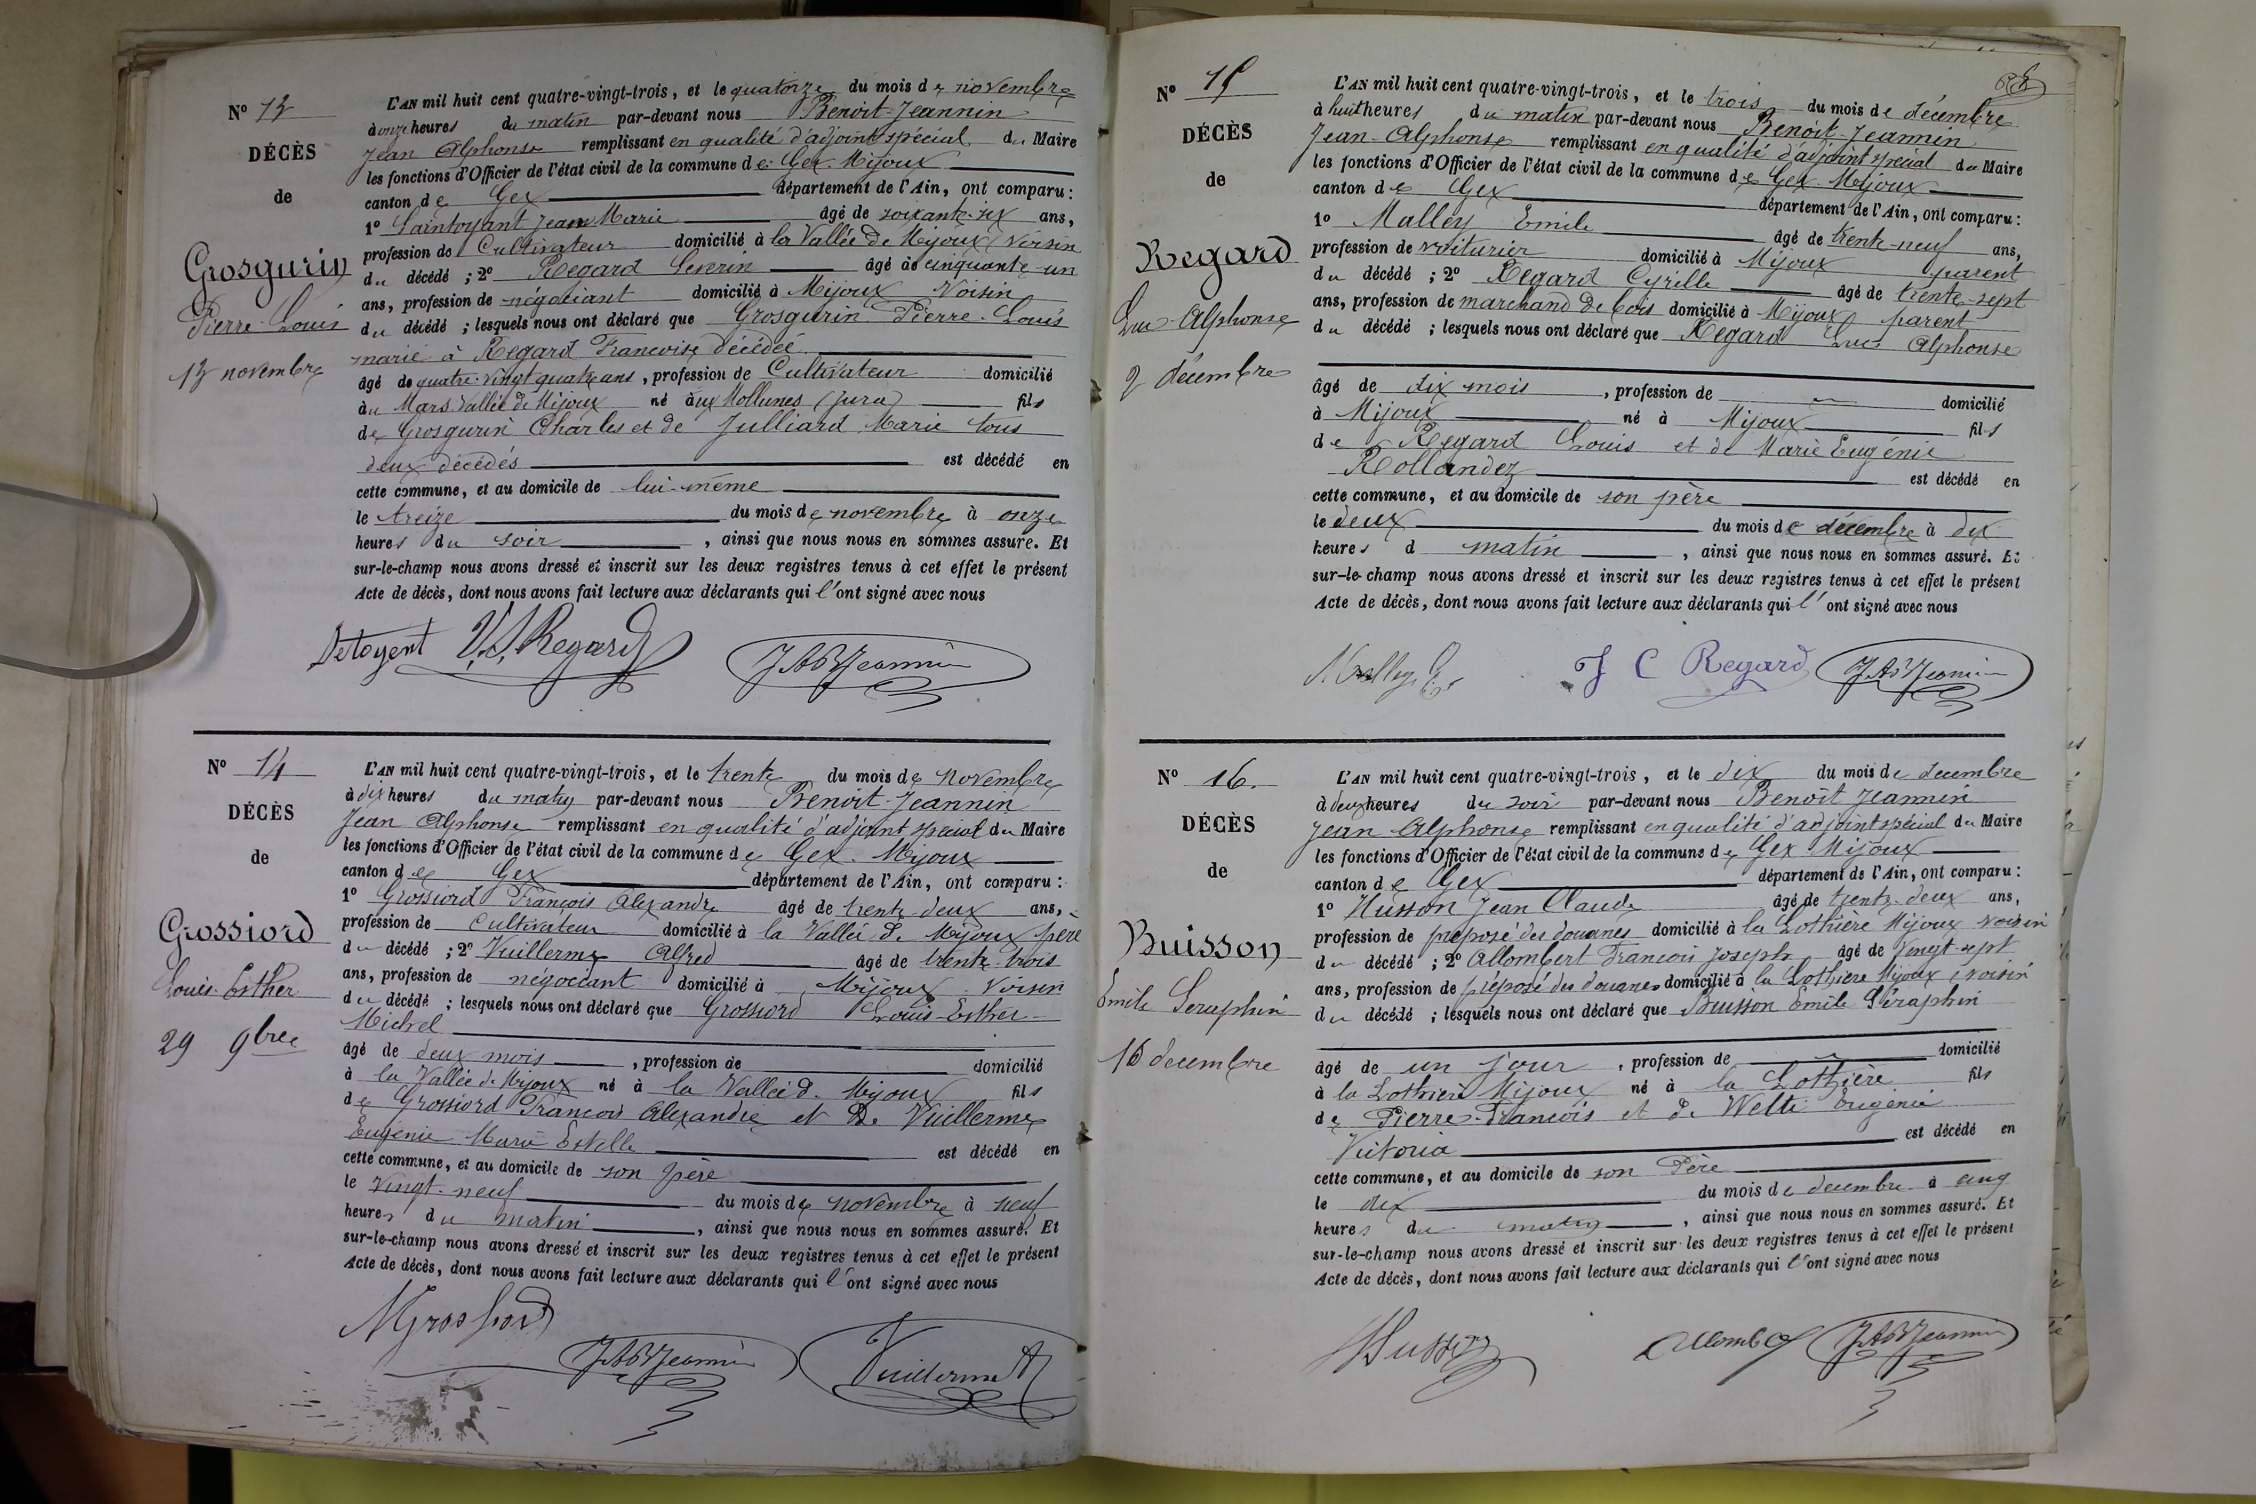 N° 13
DÉCÈS
de
Grosgurin
Pierre-Louis
13 novembre
L'AN mil huit cent quatre-vingt-trois, et le quatorze du mois de novembre
à onze heures du matin par-devant nous Benoit-Jeannin
Jean Alphonse remplissant en qualité d'adjoint spécial du Maire
les fonctions d'Officier de l'état civil de la commune de Gex-Mijoux
canton de Gex département de l'Ain, ont comparu :
1° Saintoyant Jean Marie âgé de soixante-six ans,
profession de Cultivateur domicilié à la Vallée de Mijoux voisin
du décédé ; 2° Regard Severin âgé de cinquante-un
ans, profession de négociant domicilié à Mijoux Voisin
du décédé ; lesquels nous ont déclaré que Grosgurin Pierre-Louis
marié à Regard Francoise décédée
âgé de quatre-vingt quatre ans, profession de Cultivateur domicilié
au Mars Vallée de Mijoux né aux Mollunes (Jura) fils
de Grosgurin Charles et de Julliard Marie tous
deux décédés est décédé en
cette commune, et au domicile de lui-même
le treize du mois de novembre à onze
heures du soir, ainsi que nous nous en sommes assuré. Et
sur-le-champ nous avons dressé et inscrit sur les deux registres tenus à cet effet le présent
Acte de décès, dont nous avons fait lecture aux déclarants qui l'ont signé avec nous
Detoyent V.S. Regard JAB Jeannin
N° 14
DÉCÈS
de
Grossiord
Louis-Esther
29 9bre
L'AN mil huit cent quatre-vingt-trois, et le trente du mois de novembre
à dix heures du matin par-devant nous Benoit-Jeannin
Jean Alphonse remplissant en qualité d'adjoint spécial du Maire
les fonctions d'Officier de l'état civil de la commune de Gex-Mijoux
canton de Gex département de l'Ain, ont comparu :
1° Grossiord François Alexandre âgé de trente-deux ans,
profession de cultivateur domicilié à la Vallée de Mijoux père
du décédé ; 2° Vuillerme Alfred âgé de trente-trois
ans, profession de négociant domicilié à Mijoux Voisin
du décédé ; lesquels nous ont déclaré que Grossiord Louis-Esther-
Michel
âgé de deux mois, profession de domicilié
à la Vallée de Mijoux né à la Vallée d. Mijoux fils
de Grossiord Francois Alexandre et De Vuillerme
Eugénie Marie Estelle est décédé en
cette commune, et au domicile de son père
le vingt-neuf du mois de novembre à neuf
heures du matin, ainsi que nous nous en sommes assuré. Et
sur-le-champ nous avons dressé et inscrit sur les deux registres tenus à cet effet le présent
Acte de décès, dont nous avons fait lecture aux déclarants qui l'ont signé avec nous
Grossiord
JAB Jeannin Vuillerme A
N° 15
DÉCÈS
de
Regard
Luc-Alphonse
2 décembre
L'AN mil huit cent quatre-vingt-trois, et le trois du mois de décembre
à huit heures du matin par-devant nous Benoit-Jeannin
Jean-Alphonse remplissant en qualité d'adjoint spécial du Maire
les fonctions d'Officier de l'état civil de la commune de Gex-Mijoux
canton de Gex département de l'Ain, ont comparu :
1° Malley Emile âgé de trente-neuf ans,
profession de voiturier domicilié à Mijoux parent
du décédé ; 2° Regard Cyrille âgé de trente-sept
ans, profession de marchand de bois domicilié à Mijoux parent
du décédé ; lesquels nous ont déclaré que Regard Luc Alphonse
âgé de dix mois, profession de domicilié
à Mijoux né à Mijoux fils
de Regard Louis et de Marie Eugénie
Rollandez est décédé en
cette commune, et au domicile de son père
le deux du mois de décembre à dix
heures d matin, ainsi que nous nous en sommes assuré. Et
sur-le-champ nous avons dressé et inscrit sur les deux registres tenus à cet effet le présent
Acte de décès, dont nous avons fait lecture aux déclarants qui l'ont signé avec nous
Malley J C Regard JAB Jeannin
N° 16.
DÉCÈS
de
Buisson
Emile Seraphin
10 decembre
L'AN mil huit cent quatre-vingt-trois, et le dix du mois de decembre
à deux heures du soir par-devant nous Benoit Jeannin
Jean Alphonse remplissant en qualité d'adjoint spécial du Maire
les fonctions d'Officier de l'état civil de la commune de Gex Mijoux
canton de Gex département de l'Ain, ont comparu :
1° Husson Jean Claude âgé de trente-deux ans,
profession de préposé des douanes domicilié à la Lothière Mijoux voisin
du décédé ; 2° Allombert Francois Joseph âgé de vingt-sept
ans, profession de préposé des douanes domicilié à la Lothière Mijoux voisin
du décédé ; lesquels nous ont déclaré que Buisson Emile Séraphin
âgé de un jour, profession de domicilié
à la Lothière Mijoux né à la Lothière fils
de Pierre-Francois et de Welti Eugénie
Victoria est décédé en
cette commune, et au domicile de son Père
le dix du mois de decembre à cinq
heures du matin, ainsi que nous nous en sommes assuré. Et
sur-le-champ nous avons dressé et inscrit sur les deux registres tenus à cet effet le présent
Acte de décès, dont nous avons fait lecture aux déclarants qui l'ont signé avec nous
Husson Allombert JAB Jeannin